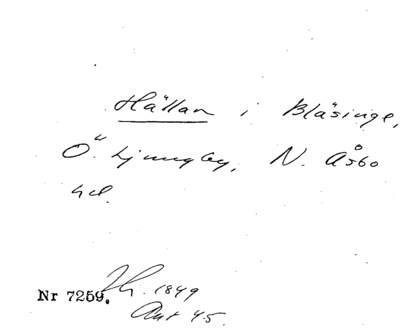 Hällan i Bläsinge,
Ö. Ljungby, N. Åsbo
hd.
Nr 7259. 1849
Ant 45.